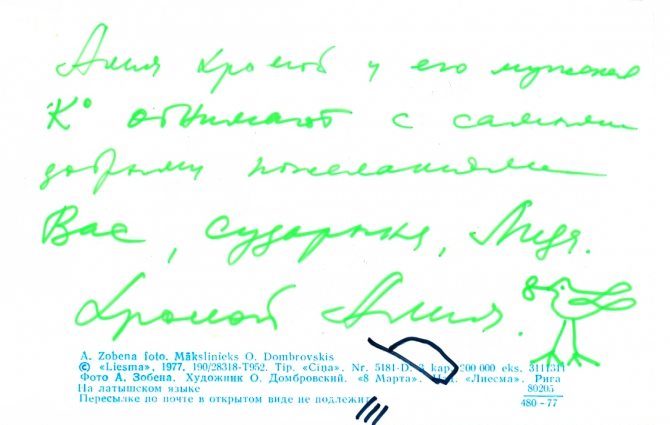 Алия Хромой и его мужская
К° обнимают с самыми
добрыми пожеланиями
Вас, сударыня, Лидя.
Хромой Алия.
A. Zobena foto. Mākslinieks O. Dombrovskis
© «Liesma», 1977. 190/28318-T952. Tip. «Cīņa». Nr. 5181-D. kap. 200 000 eks. 311131
Фото А. Зобена. Художник О. Домбровский. «8 Марта». «Лиесма». Рига
На латышском языке 80205
Пересылке по почте в открытом виде не подлежит 480-77